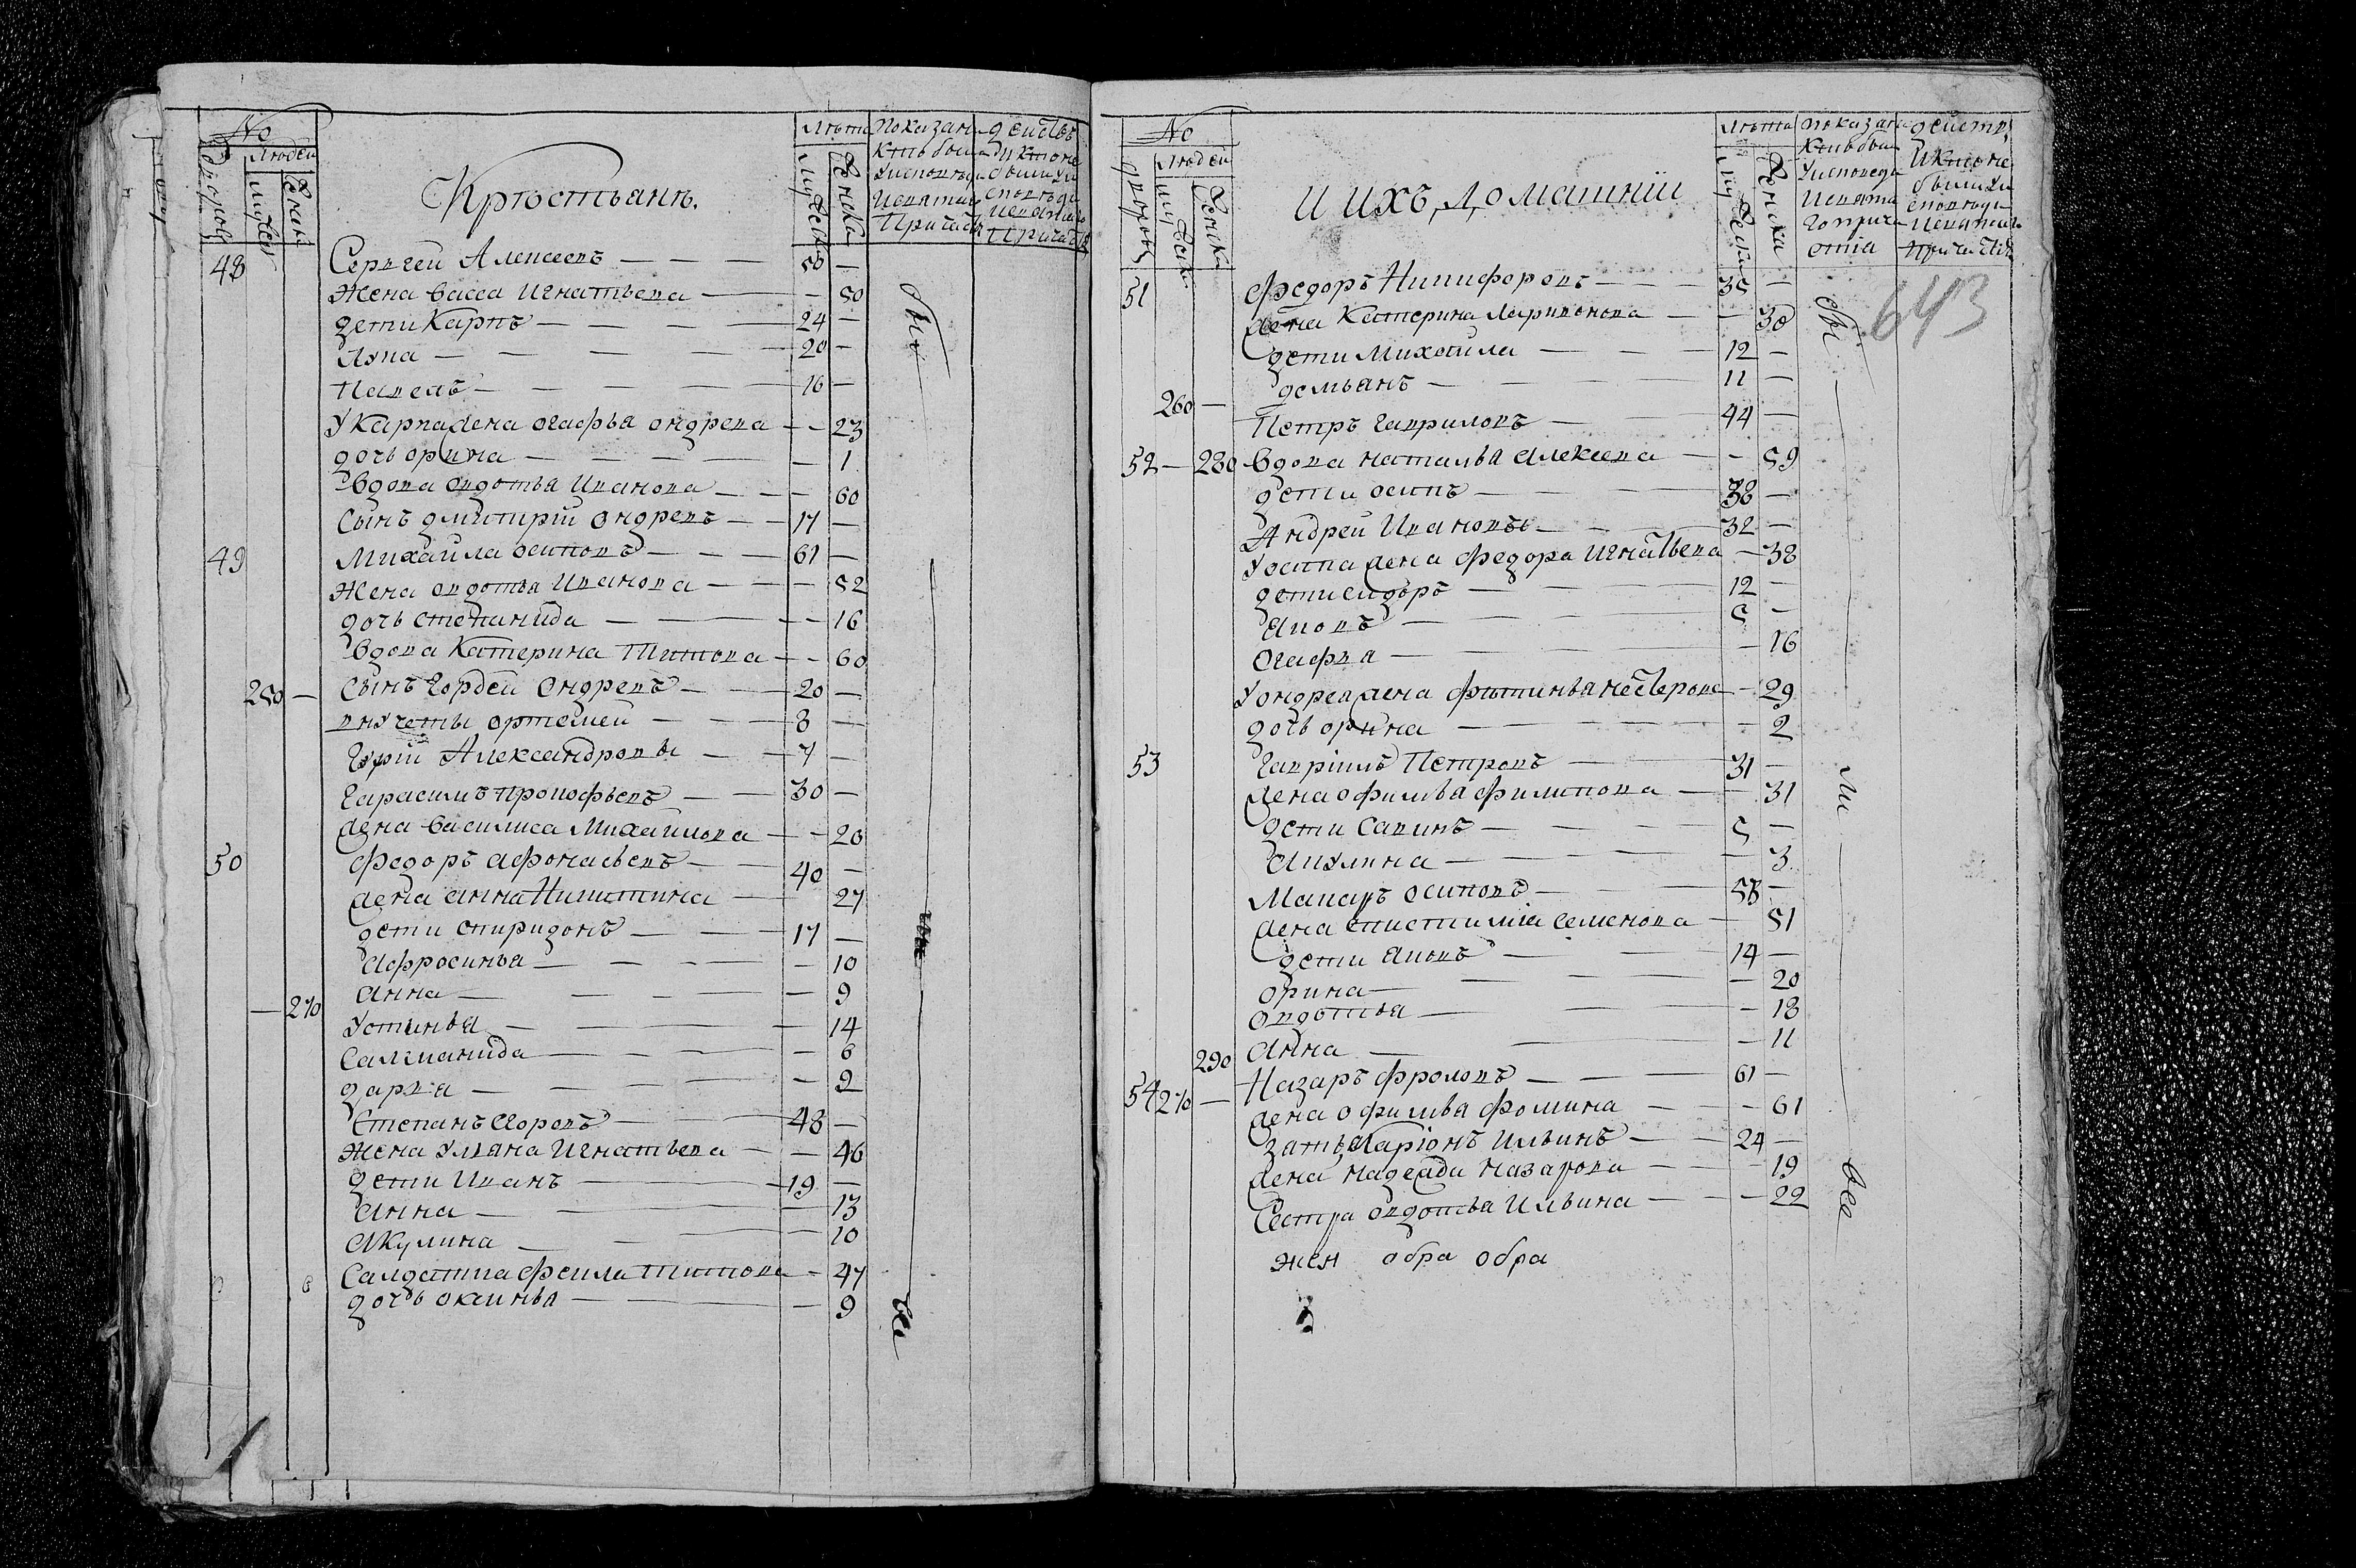 №
Людей
Дворовъ
Мужеск
Женск
Крѣстьянъ.
Лѣта
Мужеска
Женска
Показан
кто былъ
Уисповѣди
Исвятаго
Причастія
действ
икто не
были уи
споведи
исвятаго
Причастія
48 Сергей Алексеевъ — — — 50 —
Жена васса Игнатьева — — 50
дети Карпъ — — — 24 —
Лука — — — 20 —
Павелъ — — — 16 —
У Карпа жена огафья ондрева — — 23
дочь орина — — — — 1
Вдова овдотья Иванова — — — 60
Сынъ дмитрій ондревъ — — 17 —
49 Михайла осиповъ — — — 61 —
Жена овдотья Иванова — — — 52
дочь степанида — — — — 16
Вдова Катерина Титова — — 60
250 — Сынъ Гордей Ондревъ — — 20 —
внучеты ортемей — — — 8 —
Гурій Александровы — — 7 —
Гарасимъ прокофьевъ — — 30 —
жена василиса Михайлова — — 20
50 Федоръ афонасьевъ — — 40 —
жена анна Никитина — — 27
дети спиридонъ — — — 17 —
афросинья — — — — 10
анна — — — — 9
— 270 Устинья — — — 14
Саламанида — — — — 6
дарья — — — — 2
Степанъ Егоровъ — — 48 —
Жена Ульяна Игнатьева — — 46
дети Иванъ — — 19 —
анна — — — 13
акулина — — — 10
Салдатка Фекла Титова — 47
дочь оксинья — — — 9
бы
ли
все
№
Людей
дворовъ
мужеск
Женска
И ихъ, домашніи
Лѣта
мужеска
Женска
показан
кто был
Уисповеди
Исвята
го прича
стіа
действ
Икто не
были уи
споведи
исвятаго
причастія
643
51 Федоръ Никифоровъ — — — 35 —
жена Катерина Ларивонова — — 30
дети Михайла — — — 12 —
демьянъ — — — 11 —
260 — Петръ гавриловъ — — 44 —
52 — 280 Вдова наталья алексеева — — 59
дети осипъ — — — 38 —
Андрей Ивановы — — 32 —
У осипа жена федора Игнатьева — 38
дети сидоръ — — 12 —
яковъ — — — 5 —
огафья — — — — 16
У ондрея жена фетинья нестерова — 29
дочь орина — — — 2
53 Гавріилъ Петровъ — — 31 —
жена офимья филипова — — 31
дети савинъ — — — 5 —
акулина — — — — 3
Макаръ осиповъ — — 58 —
жена епистимія семенова — 51
дети яковъ — — 14 —
орина — — — — 20
овдотья — — — 18
290 анна — — — 11
54 270 — Назаръ фроловъ — — 61 —
жена офимья фомина — — — 61
зять Ларіонъ Ильинъ — — 24 —
жена надежда назарова — — 19
Сестра овдотья Ильина — — — 22
жен обра обра
бы
ли
все